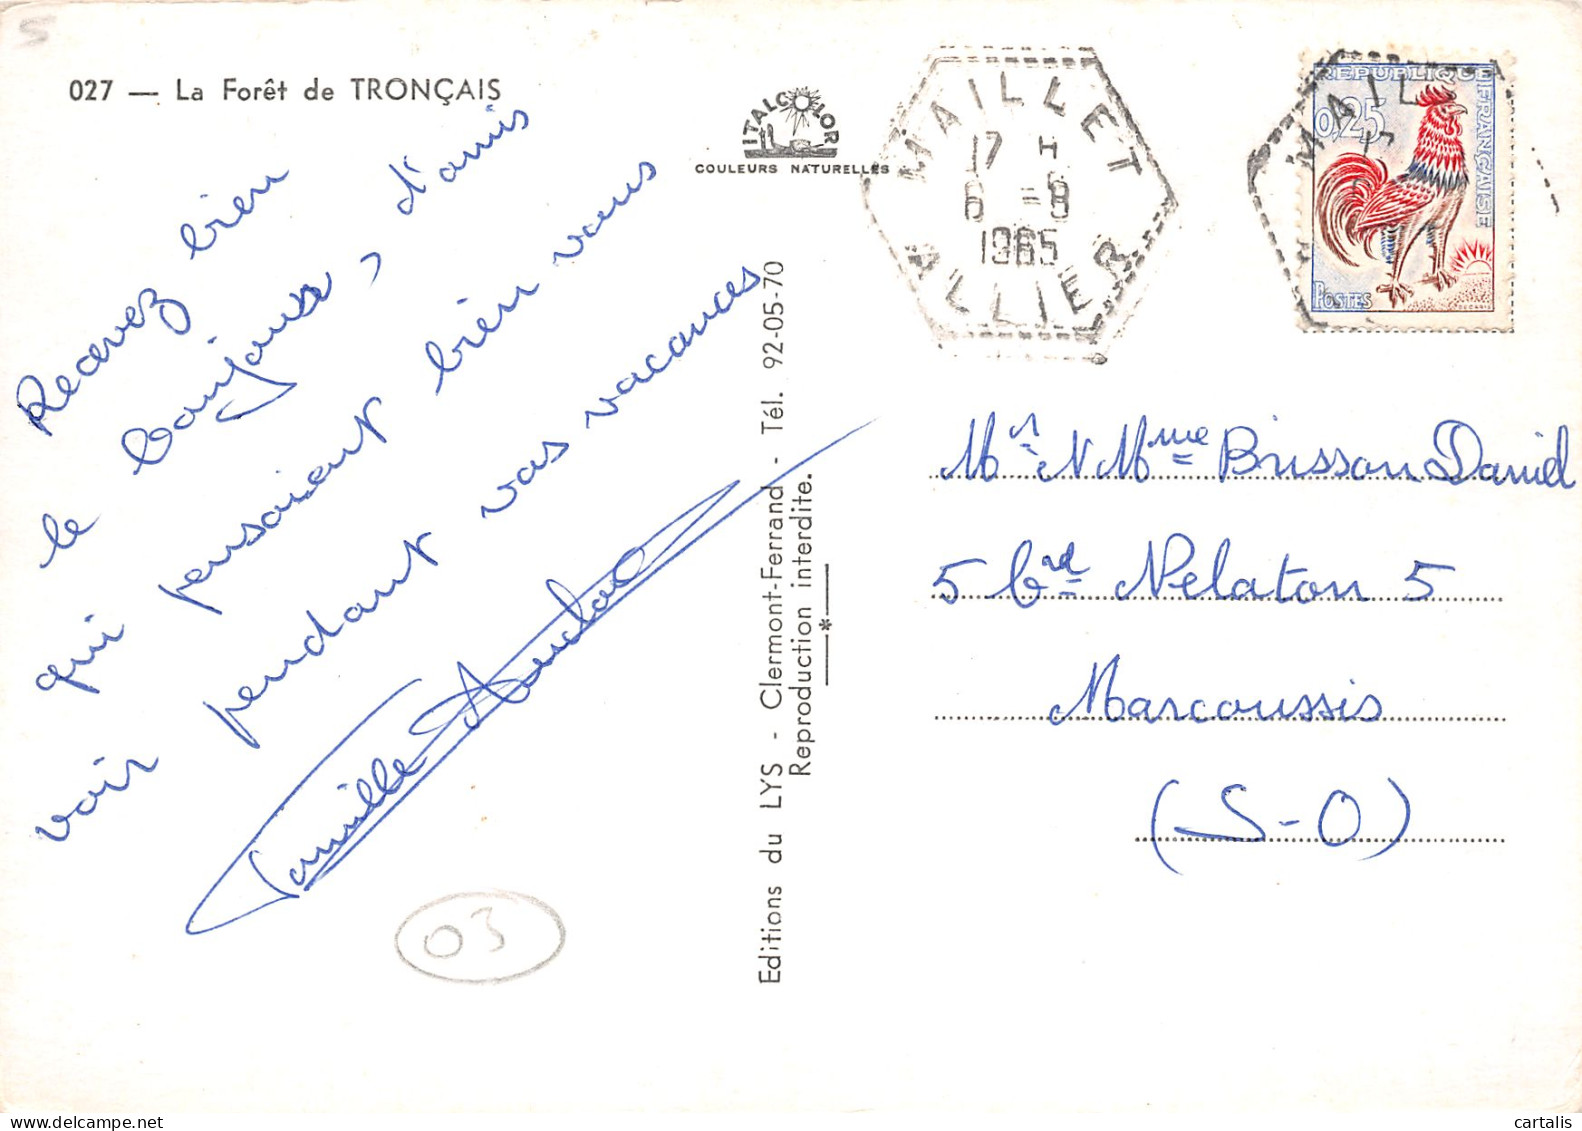 027 — La Forêt de TRONÇAIS
Recevez bien
le bonjour, d'amis
qui pensaient bien vous
voir pendant vos vacances
Famille
03
ITALCOLOR
COULEURS NATURELLES
Editions du LYS - Clermont-Ferrand - Tél. 92-05-70
Reproduction interdite.
MAILLET
17 H
6 -8
1965
ALLIER
MAIL
REPUBLIQUE FRANÇAISE
0,25
POSTES
Mr N Mme Brisson Daniel
5 brd Nelaton 5
Marcoussis
(S-O)
cartalis